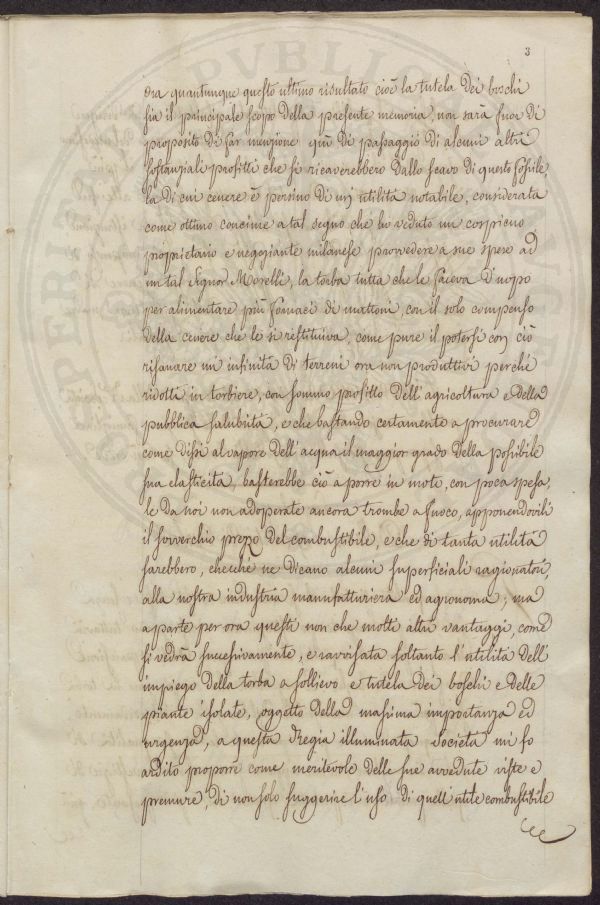 3
Ora quantunque questo ultimo risultato cioè la tutela dei boschi
sia il principale scopo della presente memoria, non sarà fuor di
proposito di far menzione quì di passaggio di alcuni altri
sostanziali profitti che si ricaverebbero dallo scavo di questo fossile,
la di cui cenere è persino di un' utilità notabile, considerata
come ottimo concime a tal segno che ho veduto un cospicuo
proprietario e negoziante milanese provvedere a sue spese ad
un tal Signor Morelli, la torba tutta che le faceva d'uopo
per alimentare più fornaci di mattoni, con il solo compenso
della cenere che le si restituiva, come pure il potersi con ciò
risanare un' infinità di terreni ora non produttivi perché
ridotti in torbiere, con sommo profitto dell' agricoltura e della
pubblica salubrità, e che bastando certamente a procurare
come dissi al vapore dell' acqua il maggior grado della possibile
sua elasticità, basterebbe ciò a porre in moto, con poca spesa,
le da noi non adoperate ancora trombe a fuoco, opponendovisi
il soverchio prezzo del combustibile, e che di tanta utilità
sarebbero, checchè ne dicano alcuni superficiali ragionatori,
alla nostra industria manufatturiera ed agronoma; ma
a parte per ora questi non che molti altri vantaggi, come
si vedrà successivamente, e ravvisata soltanto l' utilità dell'
impiego della torba a sollievo e tutela dei boschi e delle
piante isolate, oggetto della massima importanza ed
urgenza, a questa Regia illuminata Società mi fo
ardito proporre come meritevole delle sue avvedute viste e
premure, di non solo suggerire l' uso di quell' utile combustibile
PROSPERITATI PUBLICAE AUGENDAE